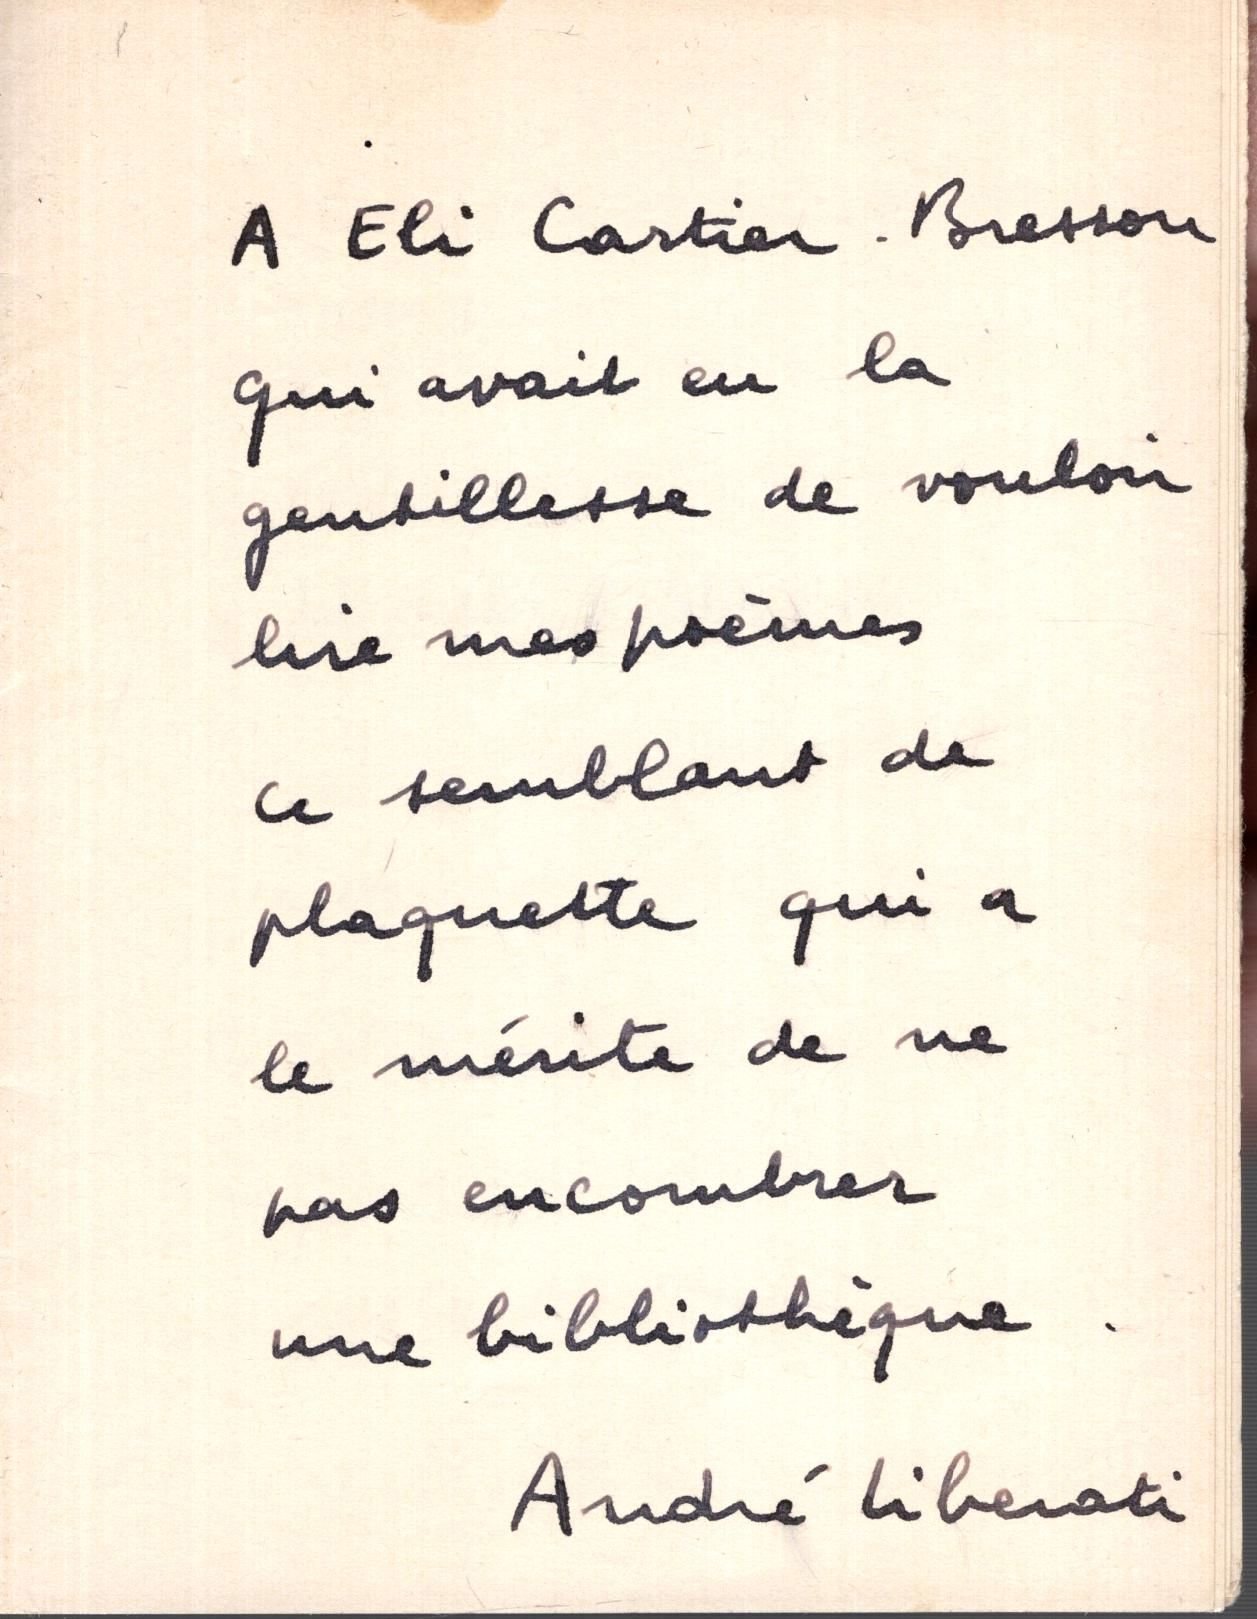 A Eli Cartier-Bresson
qui avait eu la
gentillesse de vouloir
lire mes poèmes
ce semblant de
plaquette qui a
le mérite de ne
pas encombrer
une bibliothèque.
André Liberati